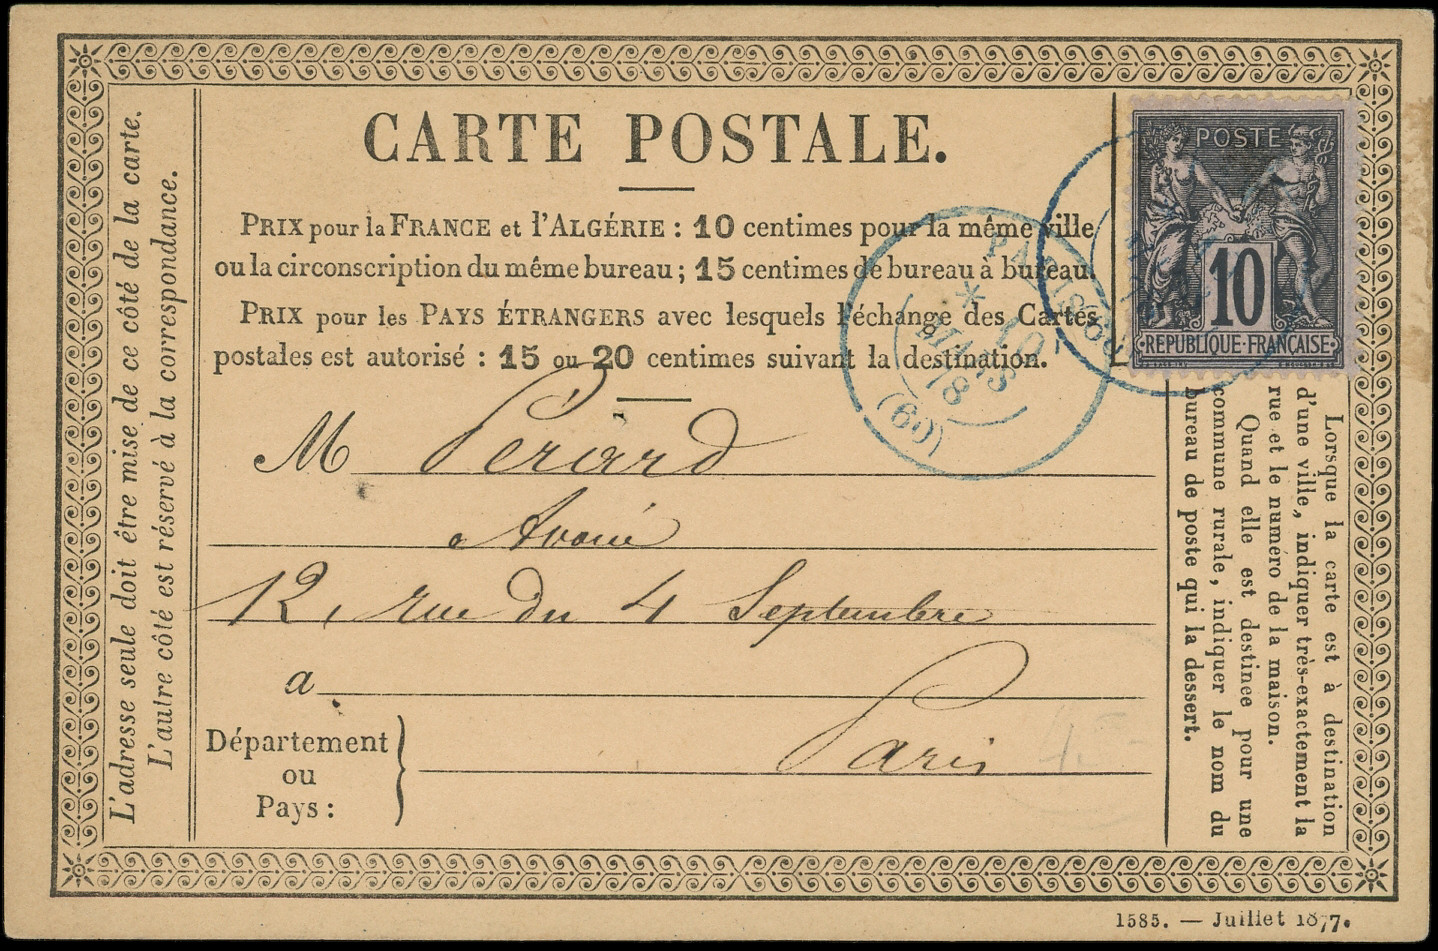 CARTE POSTALE.
PRIX pour la FRANCE et l'ALGÉRIE : 10 centimes pour la même ville
ou la circonscription du même bureau ; 15 centimes de bureau à bureau.
PRIX pour les PAYS ÉTRANGERS avec lesquels l'échange des Cartes
postales est autorisé : 15 ou 20 centimes suivant la destination.
L'adresse seule doit être mise de ce côté de la carte.
L'autre côté est réservé à la correspondance.
POSTE
10
RÉPUBLIQUE FRANÇAISE
PARIS
10
MARS
78
(60)
M Périard
Avoué
12, rue du 4 Septembre
a
Paris
Département
ou
Pays :
Lorsque la carte est à destination
d'une ville, indiquer très-exactement la
rue et le numéro de la maison.
Quand elle est destinée pour une
commune rurale, indiquer le nom du
bureau de poste qui la dessert.
1585. — Juillet 1877.